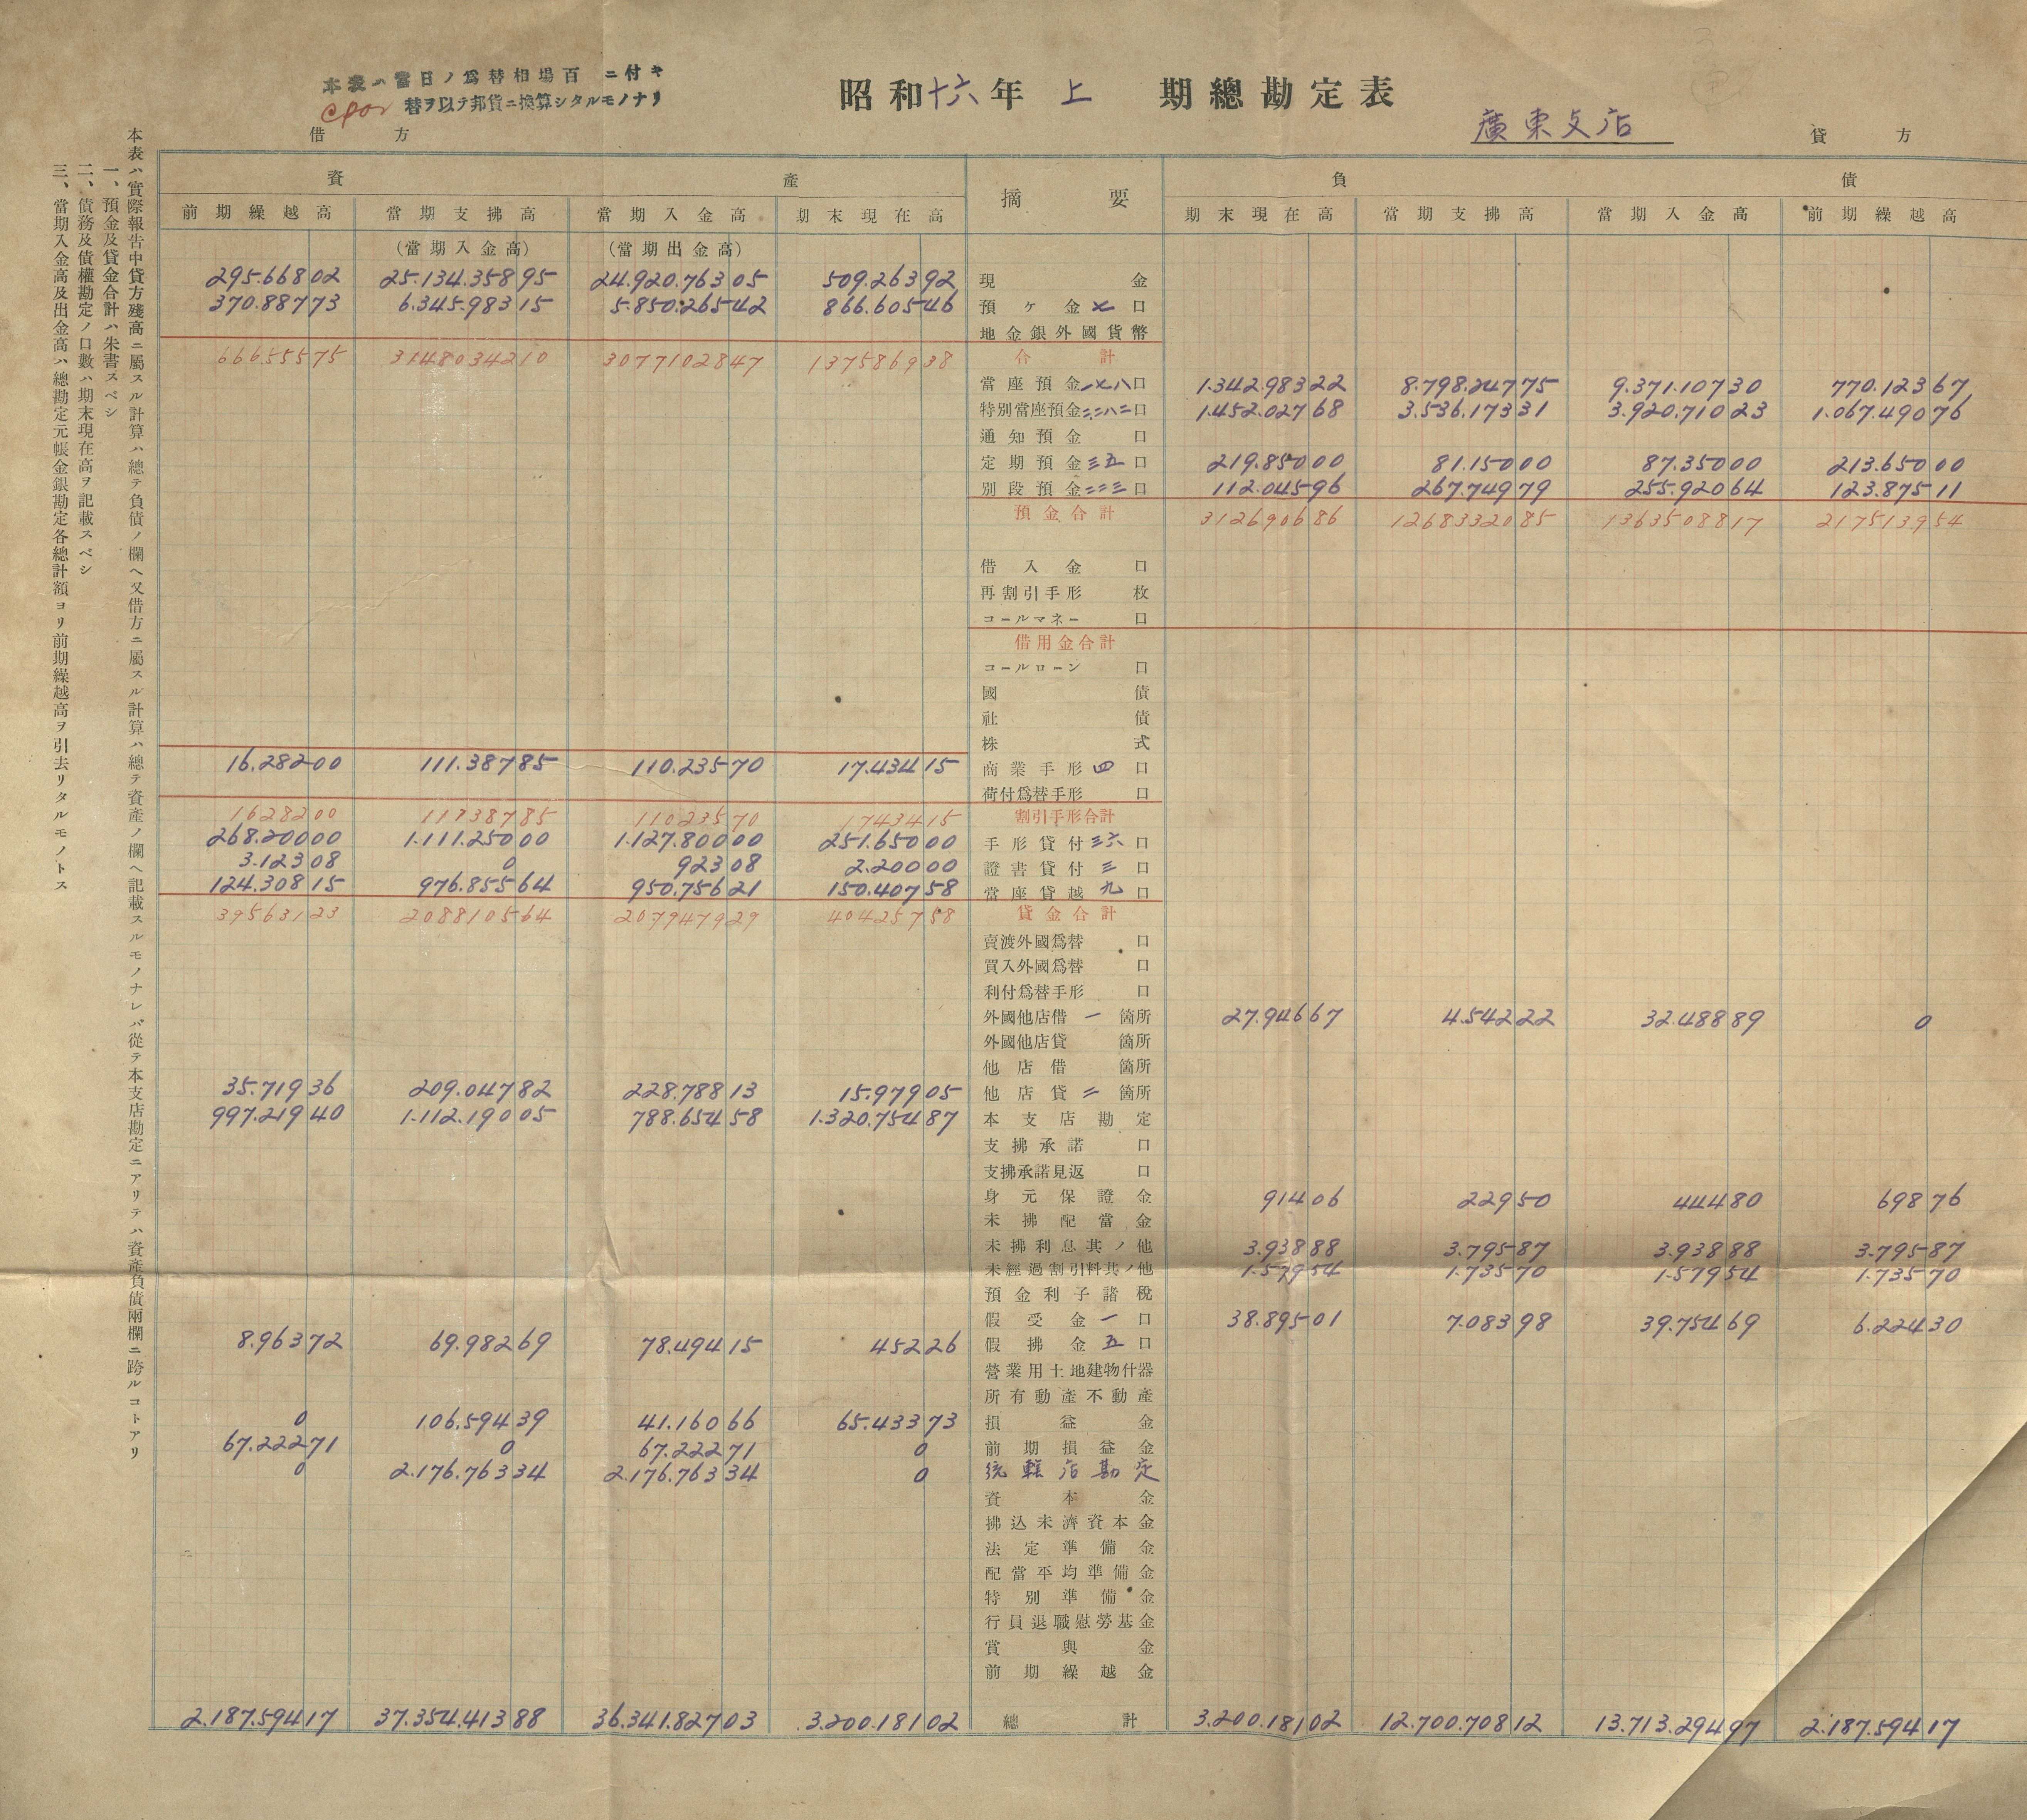 本表ハ當日ノ爲替相場百 ニ付キ
替ヲ以テ邦貨ニ換算シタルモノナリ
昭和十六年 上 期總勘定表
廣東支店
借 方
貸 方
本表ハ實際報告中貸方殘高ニ屬スル計算ハ總テ負債ノ欄ヘ又借方ニ屬スル計算ハ總テ資產ノ欄ヘ記載スルモノナレバ從テ本支店勘定ニアリテハ資產負債兩欄ニ跨ルコトアリ
一、預金及貸金合計ハ朱書スベシ
二、債務及債權勘定ノ口數ハ期末現在高ヲ記載スベシ
三、當期入金高及出金高ハ總勘定元帳金銀勘定各總計額ヨリ前期繰越高ヲ引去リタルモノトス
資 產 摘 要 負 債
前期繰越高 當期支拂高 當期入金高 期末現在高 期末現在高 當期支拂高 當期入金高 前期繰越高
(當期入金高) (當期出金高)
295.668 02 25.134.358 95 24.920.763 05 509.263 92 現 金
370.887 73 6.345.983 15 5.850.265 42 866.605 46 預ケ金 七 口
地金銀外國貨幣
666555 75 31480342 10 30771028 47 1375869 38 合 計
當座預金 一七八 口 1.342.983 22 8.798.247 75 9.371.107 30 770.123 67
特別當座預金 二二八二 口 1.452.027 68 3.536.173 31 3.920.710 23 1.067.490 76
通知預金 口
定期預金 三五 口 219.850 00 81.150 00 87.350 00 213.650 00
別段預金 二二三 口 112.045 96 267.749 79 255.920 64 123.875 11
預金合計 3126906 86 12683320 85 13635088 17 2175139 54
借入金 口
再割引手形 枚
コールマネー 口
借用金合計
コールローン 口
國 債
社 債
株 式
16.282 00 111.387 85 110.235 70 17.434 15 商業手形 四 口
荷付爲替手形 口
16282 00 111387 85 110235 70 17434 15 割引手形合計
268.200 00 1.111.250 00 1.127.800 00 251.650 00 手形貸付 三六 口
3.123 08 0 923 08 2.200 00 證書貸付 三 口
124.308 15 976.855 64 950.756 21 150.407 58 當座貸越 九 口
395631 23 2088105 64 2079479 29 404257 58 貸金合計
賣渡外國爲替 口
買入外國爲替 口
利付爲替手形 口
外國他店借 一 箇所 27.946 67 4.542 22 32.488 89 0
外國他店貸 箇所
他店借 箇所
35.719 36 209.047 82 228.788 13 15.979 05 他店貸 二 箇所
997.219 40 1.112.190 05 788.654 58 1.320.754 87 本支店勘定
支拂承諾 口
支拂承諾見返 口
身元保證金 914 06 229 50 444 80 698 76
未拂配當金
未拂利息其ノ他 3.938 88 3.795 87 3.938 88 3.795 87
未經過割引料其ノ他 1.579 54 1.735 70 1.579 54 1.735 70
預金利子諸稅
假受金 一 口 38.895 01 7.083 98 39.754 69 6.224 30
8.963 72 69.982 69 78.494 15 452 26 假拂金 五 口
營業用土地建物什器
所有動產不動產
0 106.594 39 41.160 66 65.433 73 損益金
67.222 71 0 67.222 71 0 前期損益金
0 2.176.763 34 2.176.763 34 0 統轄店勘定
資本金
拂込未濟資本金
法定準備金
配當平均準備金
特別準備金
行員退職慰勞基金
賞與金
前期繰越金
2.187.594 17 37.354.413 88 36.341.827 03 3.200.181 02 總 計 3.200.181 02 12.700.708 12 13.713.294 97 2.187.594 17